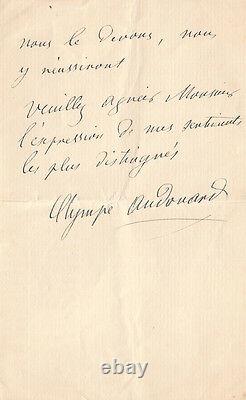 nous le devons, nous
y réussirons
Veuillez agréer Monsieur
l'expression de mes sentiments
les plus distingués
Olympe Audouard
ebay.com
withQ.com